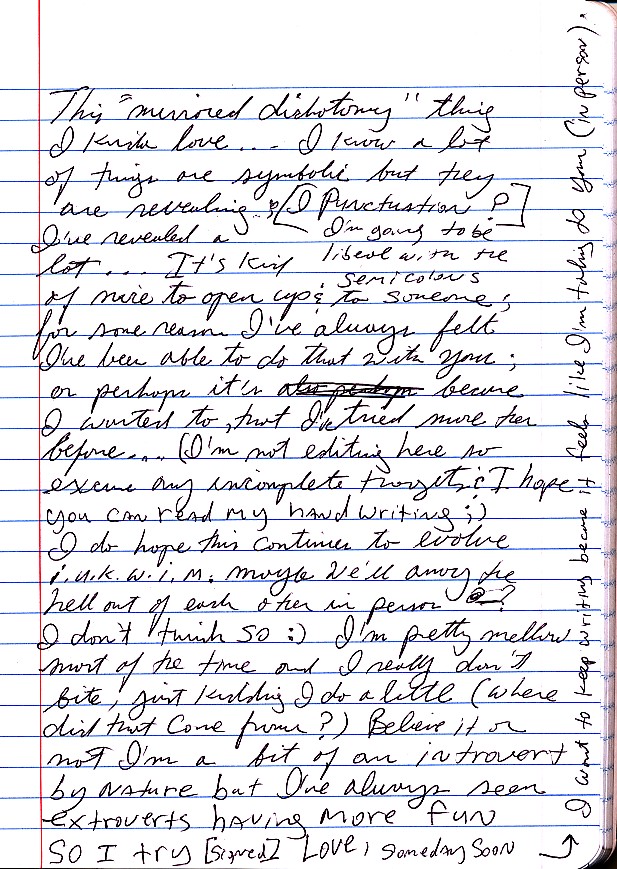 This "mirrored dichotomy" thing
I kinda love.... I know a lot
of things are symbolic but they
are revealing.. [I Punctuation ?]
I've revealed a I'm going to be
liberal with the
lot.... It's kind
semicolons
of nice to open up to someone;
for some reason I've always felt
I've been able to do that with you;
or perhaps it's because
I wanted to, that I've tried more than
before.... (I'm not editing here so
excuse any incomplete thoughts; I hope
you can read my handwriting ;)
I do hope this continues to evolve
i.y.k.w.i.m. maybe we'll annoy the
hell out of each other in person ?
I don't think so :) I'm pretty mellow
most of the time and I really don't
bite, just kidding I do a little (where
did that come from?) Believe it or
not I'm a bit of an introvert
by nature but I've always seen
extroverts having more fun
so I try [signed] Love, someday soon
I want to keep writing because it feels like I'm talking to you (in person).